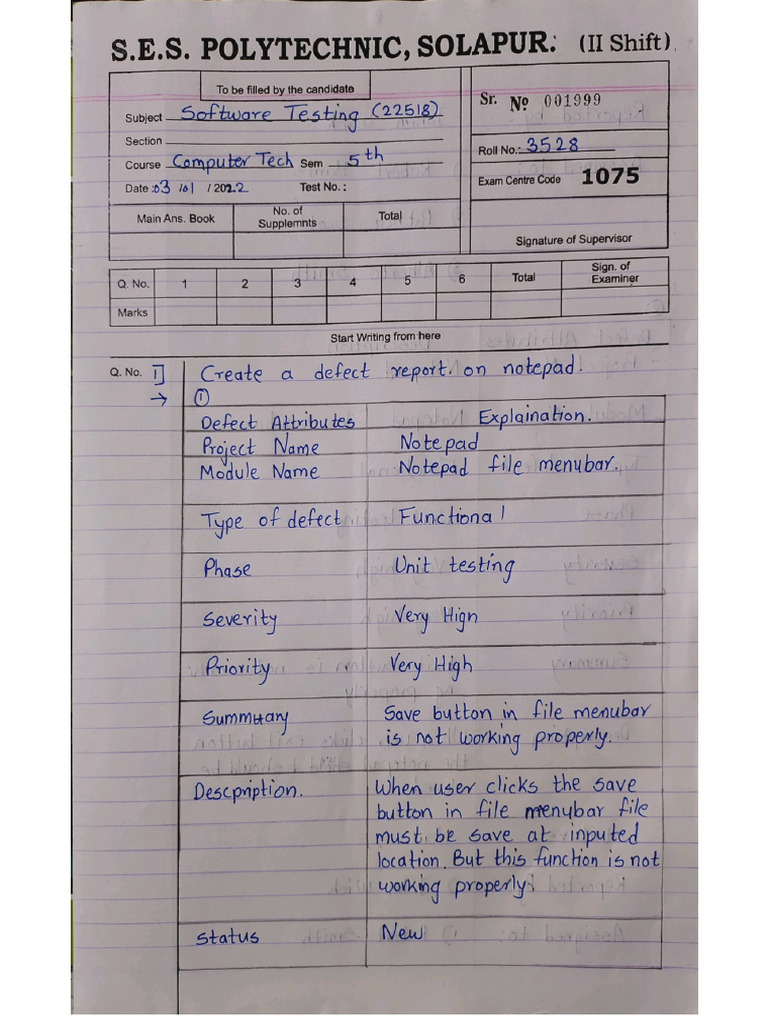 S.E.S. POLYTECHNIC, SOLAPUR. (II Shift)
To be filled by the candidate
Subject Software Testing (22518)
Section
Course Computer Tech Sem 5th
Date : 03 / 01 / 2022 Test No. :
Main Ans. Book No. of Supplemnts Total
Sr. No 001999
Roll No.: 3528
Exam Centre Code 1075
Signature of Supervisor
Q. No. 1 2 3 4 5 6 Total Sign. of Examiner
Marks
Start Writing from here
Q. No. 1] Create a defect report. on notepad.
→ ①
Defect Attributes Explaination.
Project Name Notepad
Module Name Notepad file menubar.
Type of defect Functional
Phase Unit testing
Severity Very Hign
Priority Very High
Summary Save button in file menubar
is not working properly.
Descpription. When user clicks the save
button in file menybar file
must be save at inputed
location. But this function is not
working properly.
Status New